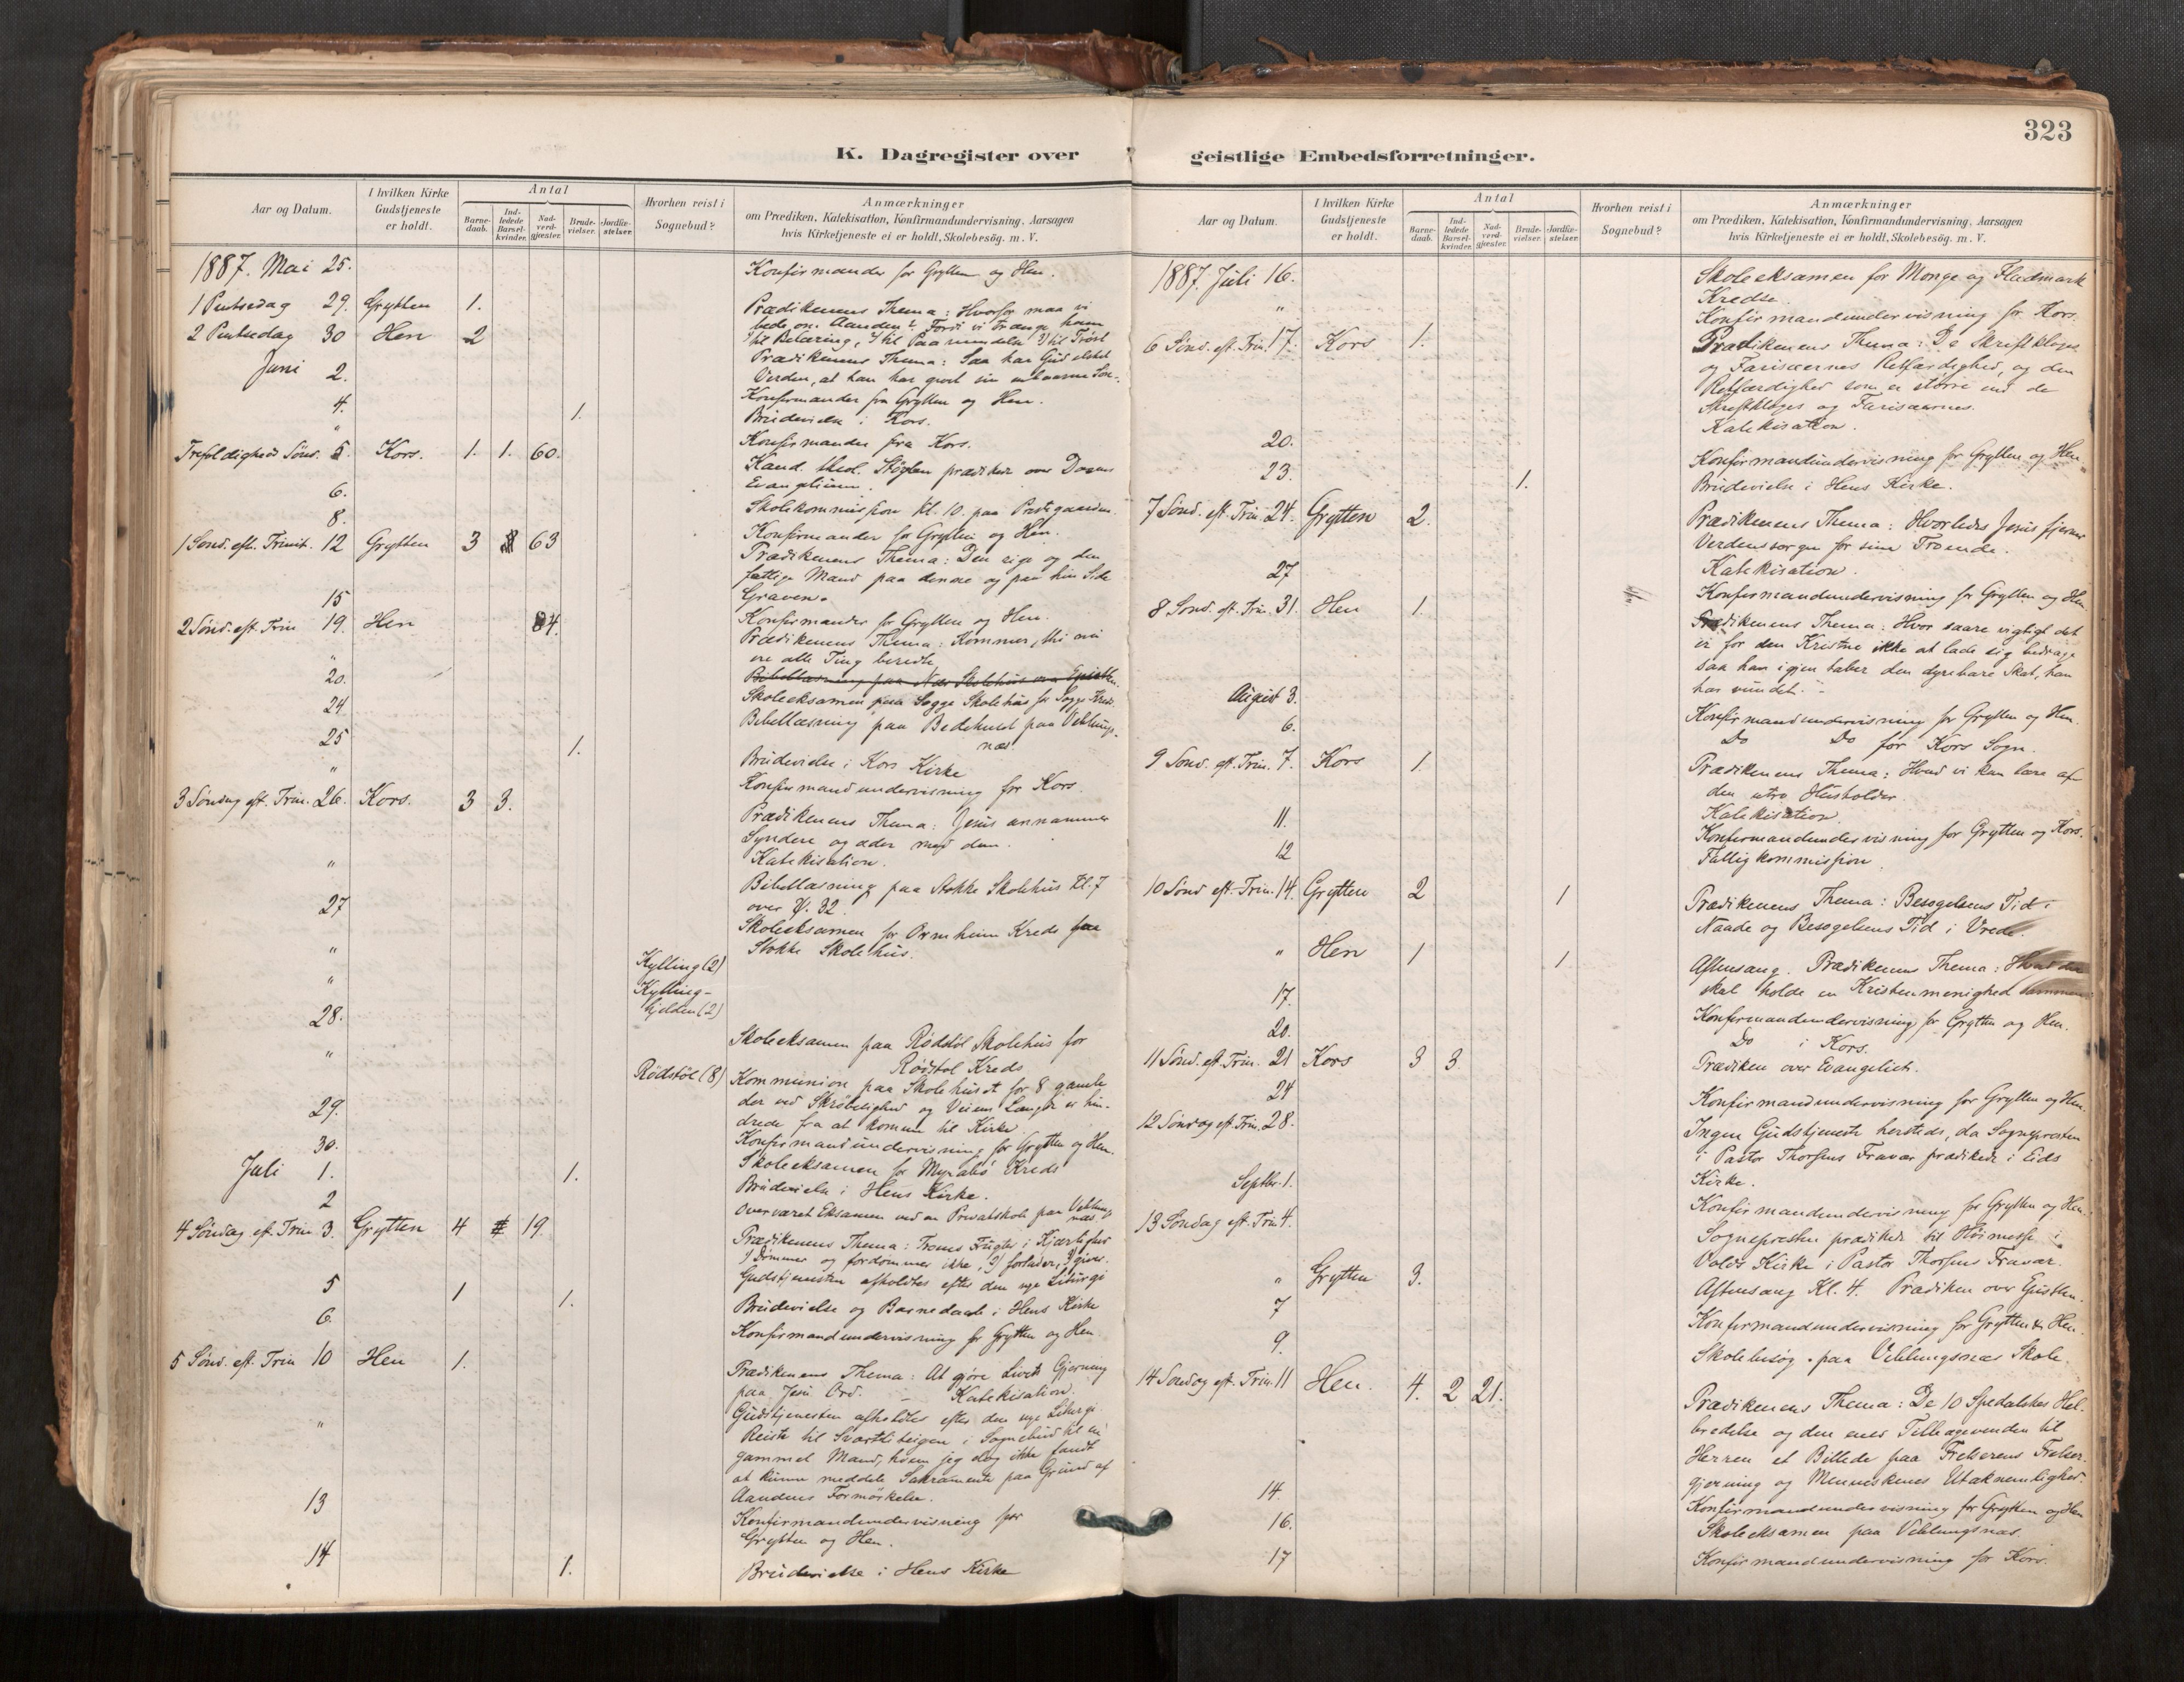 323
K. Dagregister over
Aar og Datum.
I hvilken Kirke Gudstjeneste er holdt.
Antal
Barne-daab.
Ind-ledede Barsel-kvinder.
Nad-verd-gjester.
Brude-vielser.
Jordfæ-stelser.
Hvorhen reist i Sognebud?
Anmærkninger
om Prædiken, Katekisation, Konfirmandundervisning, Aarsagen
hvis Kirketjeneste ei er holdt, Skolebesög. m. V.
1887. Mai 25. Konfirmander for Grytten og Hen.
1 Pintsedag 29. Grytten 1. Prædikenens Thema: Hvorfor maa vi
bede om Aanden? Fordi vi trænge ham
til Belæring, 2) til Paamindelse 3) til Trøst
2 Pintsedag 30 Hen 2 Prædikenens Thema: Saa har Gud elsket
Verden, at han har givet sin enbaarne Søn.
Juni 2. Konfirmander fra Grytten og Hen.
4. 1. Brudevielse i Kors.
" Konfirmander fra Kors.
Trefoldigheds Sønd. 5 Kors. 1. 1. 60. Kand. theol. Støylen prædikede over Dagens
Evangelium.
6. Skolekommission kl. 10. paa Prestegaarden.
8. Konfirmander for Grytten og Hen.
1 Sønd. eft. Trinit. 12 Grytten 3 63 Prædikenens Thema: Den rige og den
fattige Mand paa denne og paa hin Side
Graven.
15 Konfirmander for Grytten og Hen.
2 Sønd. eft. Trin 19. Hen 84. Prædikenens Thema: Kommer, thi nu
ere alle Ting beredte
"
20. Skoleeksamen paa Sogge Skolehus for Sogge Kreds.
24 Bibellæsning paa Bedehuset paa Veblungs-
næs
25 1. Brudevielse i Kors Kirke
" Konfirmandundervisning for Kors.
3 Søndag eft. Trin. 26. Kors. 3 3. Prædikenens Thema: Jesus annammer
Syndere og æder med dem.
Katekisation.
" Bibellæsning paa Stokke Skolehus Kl. 7
over Ψ. 32.
27 Skoleeksamen for Ormheim Kreds paa
Stokke Skolehus.
" Kylling (2)
" Kylling-
hjelden (2)
28. Skoleeksamen paa Rødstøl Skolehus for
Rødstøl Kreds
" Rödstöl (8) Kommunion paa Skolehuset for 8 gamle
der ved Skrøbelighed og Veiens Længde er hin-
drede fra at komme til Kirke.
29. Konfirmandundervisning for Grytten og Hen.
30. Skoleeksamen for Myrabø Kreds
Juli 1. 1. Brudevielse i Hens Kirke.
2 Overværet Eksamen ved en Privatskole paa Veblungs
næs
4 Søndag eft. Trin 3. Grytten 4 19. Prædikenens Thema: Troens Frugter i Kjærlighed
1) Dømmer og fordømmer ikke, 2) forlader, 3) giver.
Gudstjenesten afholdtes efter den nye Liturgi
5 1 1. Brudevielse og Barnedaab i Hens Kirke
6. Konfirmandundervisning for Grytten og Hen
5 Sønd. eft. Trin 10 Hen 1. Prædikenens Thema: At gjøre Livets Gjerning
paa Jesu Ord. – Katekisation.
Gudstjenesten afholdtes efter den nye Liturgi
" Reiste til Svartteigen i Sognebud til en
gammel Mand, hvem jeg dog ikke fandt
at kunne meddele Sakramente paa Grund af
Aandens Formørkelse.
13 Konfirmandundervisning for
Grytten og Hen.
14 1. Brudevielse i Hens Kirke
geistlige Embedsforretninger.
Aar og Datum.
I hvilken Kirke Gudstjeneste er holdt.
Antal
Barne-daab.
Ind-ledede Barsel-kvinder.
Nad-verd-gjester.
Brude-vielser.
Jordfæ-stelser.
Hvorhen reist i Sognebud?
Anmærkninger
om Prædiken, Katekisation, Konfirmandundervisning, Aarsagen
hvis Kirketjeneste ei er holdt, Skolebesög. m. V.
1887. Juli 16. Skoleeksamen for Monge og Fladmark
Kredse.
" Konfirmandundervisning for Kors.
6 Sønd. eft. Trin. 17. Kors 1. Prædikenens Thema: De Skriftkloges
og Farisæernes Retfærdighed, og den
Retfærdighed som er større end de
Skriftkloges og Farisæernes.
Katekisation.
20. Konfirmandundervisning for Grytten og Hen
23. 1. Brudevielse i Hens Kirke.
7 Sønd. eft. Trin. 24. Grytten 2. Prædikenens Thema: Hvorledes Jesus fjerner
Verdenssorgen for sine Troende.
Katekisation.
27 Konfirmandundervisning for Grytten og Hen.
8 Sønd. eft. Trin. 31. Hen 1. Prædikenens Thema: Hvor saare vigtigt det
er for den Kristne ikke at lade sig bedrage
saa han igjen taber den dyrebare Skat, han
har vundet. –
August 3. Konfirmandundervisning for Grytten og Hen.
6. Do Do for Kors Sogn.
9 Sønd. eft. Trin. 7. Kors 1. Prædikenens Thema: Hvad vi kan lære af
den utro Husholder.
Katekisation.
11. Konfirmandundervisning for Grytten og Kors.
12 Fattigkommission.
10 Sønd eft. Trin. 14. Grytten 2 1 Prædikenens Thema: Besøgelsens Tid i
Naade og Besøgelsens Tid i Vrede.
" Hen 1 1 Aftensang. Prædikenens Thema: Hvad der
skal holde en Kristenmenighed sammen
17. Konfirmandundervisning for Grytten og Hen.
20. Do i Kors.
11 Sønd. eft. Trin. 21 Kors 3 3. Prædiken over Evangeliet.
24 Konfirmandundervisning for Grytten og Hen.
12 Søndag eft. Trin. 28. Ingen Gudstjeneste hersteds, da Sognepresten
i Pastor Thorsens Fravær prædikede i Eids
Kirke.
Septbr. 1. Konfirmandundervisning for Grytten og Hen
13 Søndag eft. Trin 4. Sognepresten prædikede til Høimesse i
Volds Kirke i Pastor Thorsens Fravær.
" Grytten 3. Aftensang Kl. 4. Prædiken over
7 Konfirmandundervisning for Grytten & Hen.
9. Skolebesøg paa Veblungsnæs Skole.
14 Søndag eft. Trin. 11 Hen. 4. 2 21. Prædikenens Thema: De 10 Spedalskes Hel-
bredelse og den enes Tilbagevenden til
Herren et Billede paa Frelserens Frelser-
gjerning og Menneskenes Utaknemlighed.
14. Konfirmandundervisning for Grytten og Hen
16. Skoleeksamen paa Veblungsnæs.
17 Konfirmandundervisning for Kors.